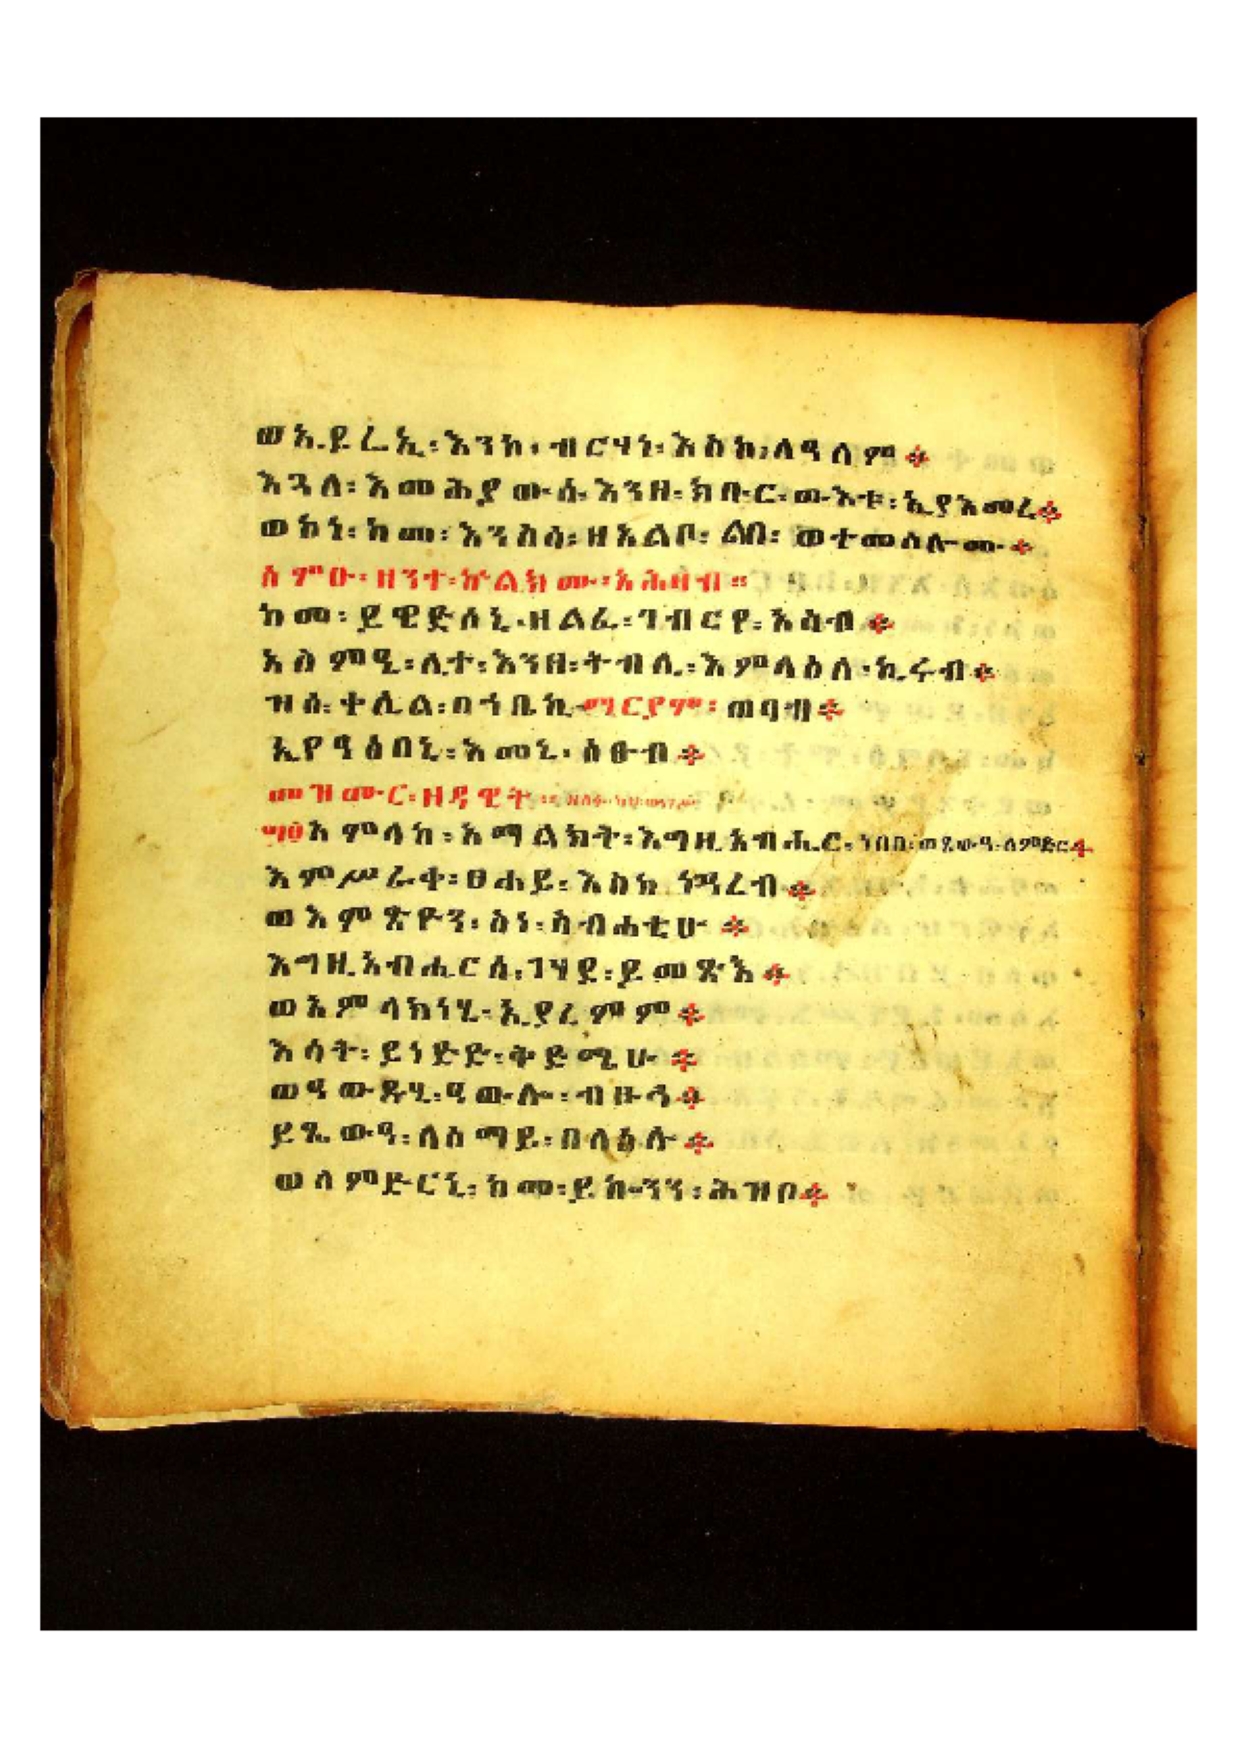 ወኢይሬኢ፡እንከ፡ብርሃነ፡እስከ፡ለዓለም።
እጓለ፡እመሕያውሰ፡እንዘ፡ክቡር፡ውእቱ፡ኢያእመረ።
ወኮነ፡ከመ፡እንስሳ፡ዘአልቦ፡ልበ፡ወተመሰሎሙ።
ስምዑ፡ዘንተ፡ኵልክሙ፡አሕዛብ።
ከመ፡ይዌድሰኒ፡ዘልፈ፡ገብርየ፡እሴብ።
አስምዒ፡ሊተ፡እንዘ፡ትብሊ፡እምላዕለ፡ኪሩብ።
ዝሰ፡ተሊል፡በኀቤኪ፡ማርያም፡ወባዝኅ።
ኢየዓፅበኒ፡እመኒ፡ዕፁብ።
መዝሙር፡ዘዳዊት፡
፵፱ አምላከ፡አማልክት፡እግዚአብሔር፡ነበበ፡ወጸውዓ፡ለምድር።
እምሥራቀ፡ፀሐይ፡እስከ ነዓረብ።
ወእምጽዮን፡ስነ፡ስብሐቲሁ።
እግዚአብሔርሰ፡ገሃደ፡ይመጽእ።
ወአምላክነሂ፡ኢያረምም።
እሳት፡ይነድድ፡ቅድሜሁ።
ወዓውዱሂ፡ዓውሎ፡ብዙኅ።
ይጼውዓ፡ለሰማይ፡በላዕሉ።
ወለምድርኒ፡ከመ፡ይኰንን፡ሕዝቦ።